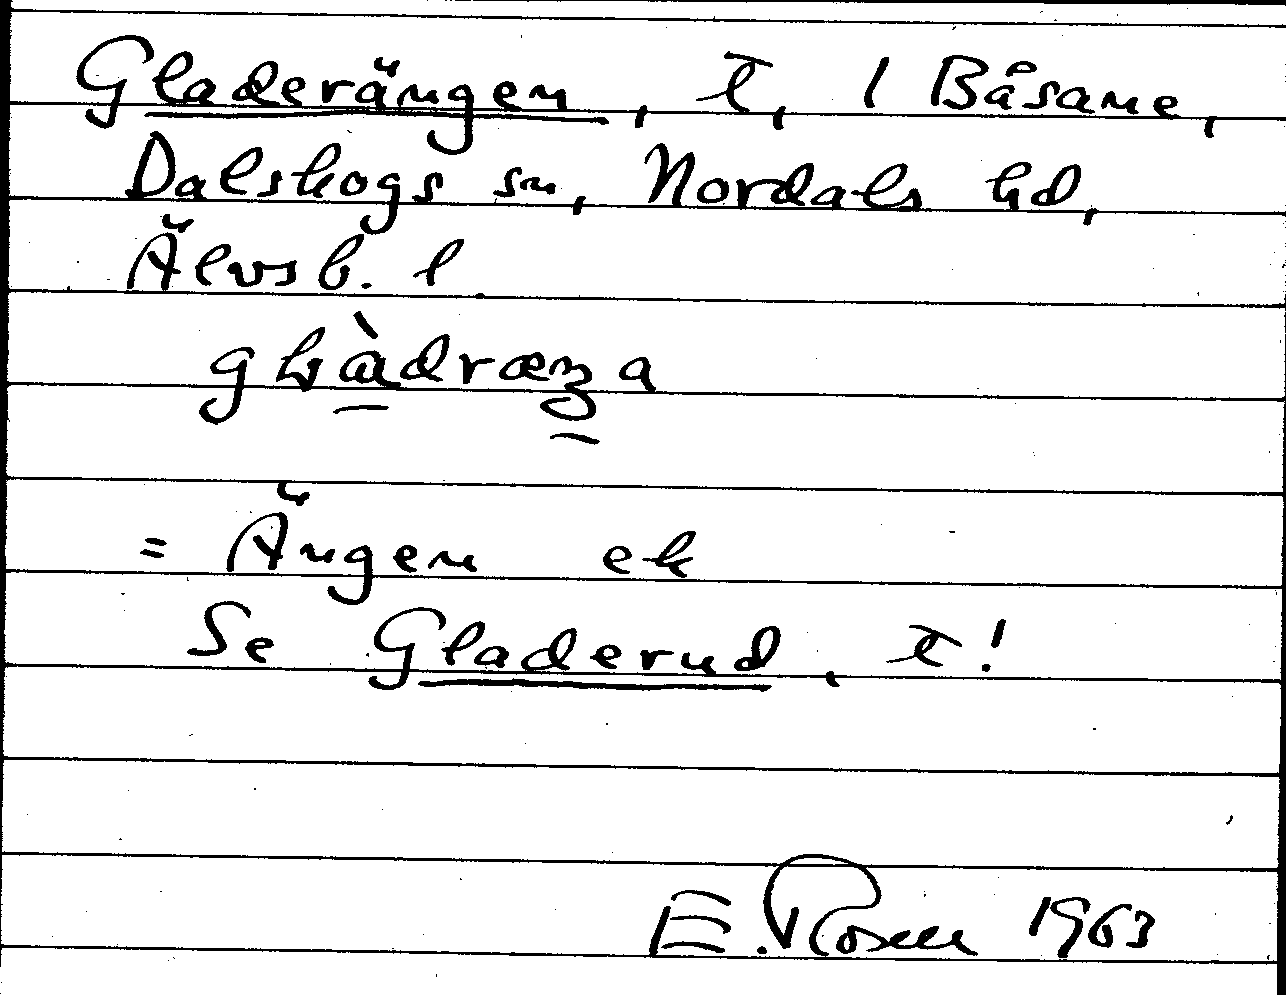 Gladerängen, t, 1 Båsane,
Dalskogs sn, Nordals hd,
Älvsb. l.
= Ängen ek
Se Gladerud, t!
E. Rosell 1963